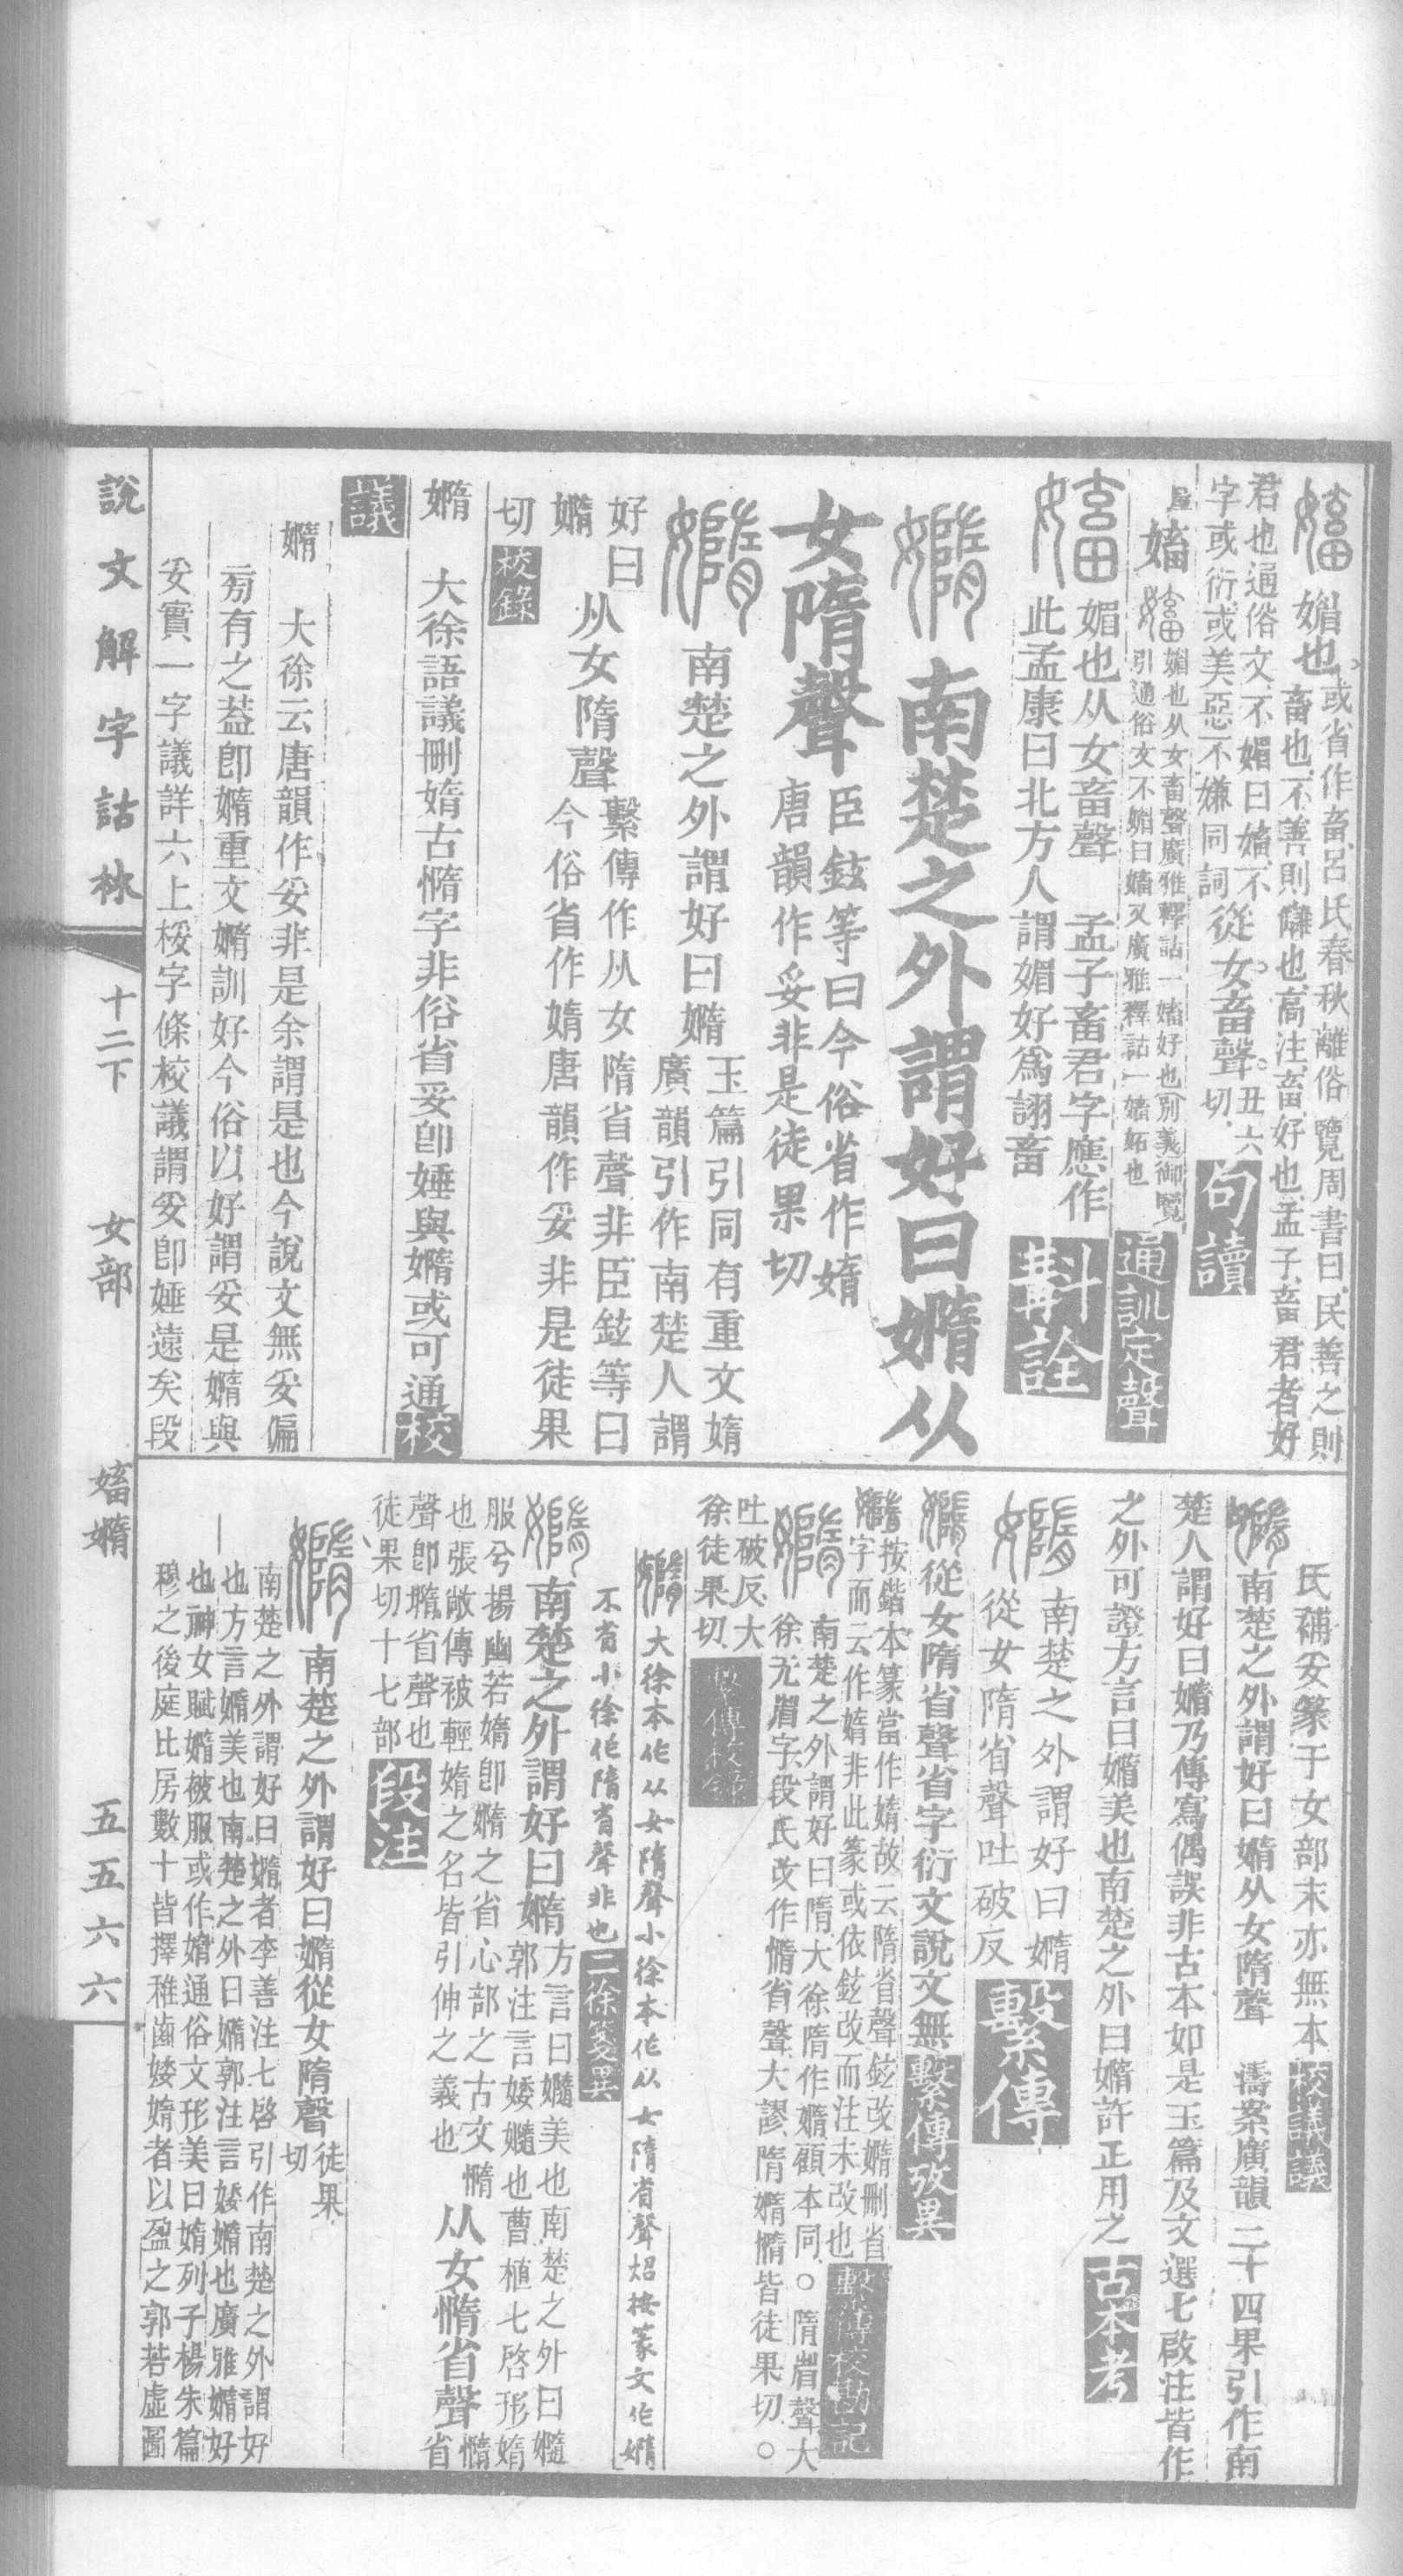 嬌媚也或省作畜呂氏春秋離俗覽周書曰民善之則
畜也不善則讎也高注畜好也孟子畜君者好
君也通俗文不媚曰嬌不
字或衍或美惡不嫌同詞從女畜聲丑六切句讀
媚也从女畜聲廣雅釋詁一嬌好也別義御覽
引通俗文不媚曰嬌又廣雅釋詁一嬌妬也通訓定聲
媚也从女畜聲 孟子畜君字應作
此孟康曰北方人謂媚好爲詡畜斠詮
南楚之外謂好曰嫷从
女隋聲臣鉉等曰今俗省作媠
唐韻作妥非是徒果切
南楚之外謂好曰嫷玉篇引同有重文媠
廣韻引作南楚人謂
好曰嫷从女隋聲繫傳作从女隋省聲非臣鉉等曰
今俗省作媠唐韻作妥非是徒果
切校錄
嫷 大徐語議刪媠古惰字非俗省妥卽娷與嫷或可通校
議
嫷 大徐云唐韻作妥非是余謂是也今說文無妥偏
㫄有之葢卽嫷重文嫷訓好今俗以好謂妥是嫷與
妥實一字議詳六上桵字條校議謂妥卽娷遠矣段
氏補妥篆于女部末亦無本校議議
南楚之外謂好曰嫷从女隋聲 濤案廣韻二十四果引作南
楚人謂好曰嫷乃傳寫偶誤非古本如是玉篇及文選七啟注皆作
之外可證方言曰嫷美也南楚之外曰嫷許正用之古本考
南楚之外謂好曰嫷
從女隋省聲吐破反繫傳
從女隋省聲省字衍文說文無繫傳攷異
按鍇本篆當作媠故云隋省聲鉉改嫷刪省
字而云作媠非此篆或依鉉改而注未改也繫傳校勘記
南楚之外謂好曰隋大徐隋作嫷顧本同○隋省聲大
徐无省字段氏改作惰省聲大謬隋嫷惰皆徒果切○
吐破反大
徐徒果切繫傳校錄
大徐本作从女隋聲小徐本作从女隋省聲炤按篆文作嫷
不省小徐作隋省聲非也二徐箋異
南楚之外謂好曰嫷方言曰嫷美也南楚之外曰嫷
郭注言婑嫷也曹植七啓形媠
服兮揚幽若媠卽嫷之省心部之古文惰
也張敞傳被輕媠之名皆引伸之義也从女惰省聲惰省
聲卽隋省聲也
徒果切十七部段注
南楚之外謂好曰嫷從女隋聲徒果
切
南楚之外謂好曰嫷者李善注七啓引作南楚之外謂好
也方言嫷美也南楚之外曰嫷郭注言婑嫷也廣雅嫷好
也神女賦嫷被服或作媠通俗文形美曰媠列子楊朱篇
穆之後庭比房數十皆擇稚齒婑媠者以盈之郭若虛圖
說文解字詁林
十二下
女部
嬌嫷
五五六六